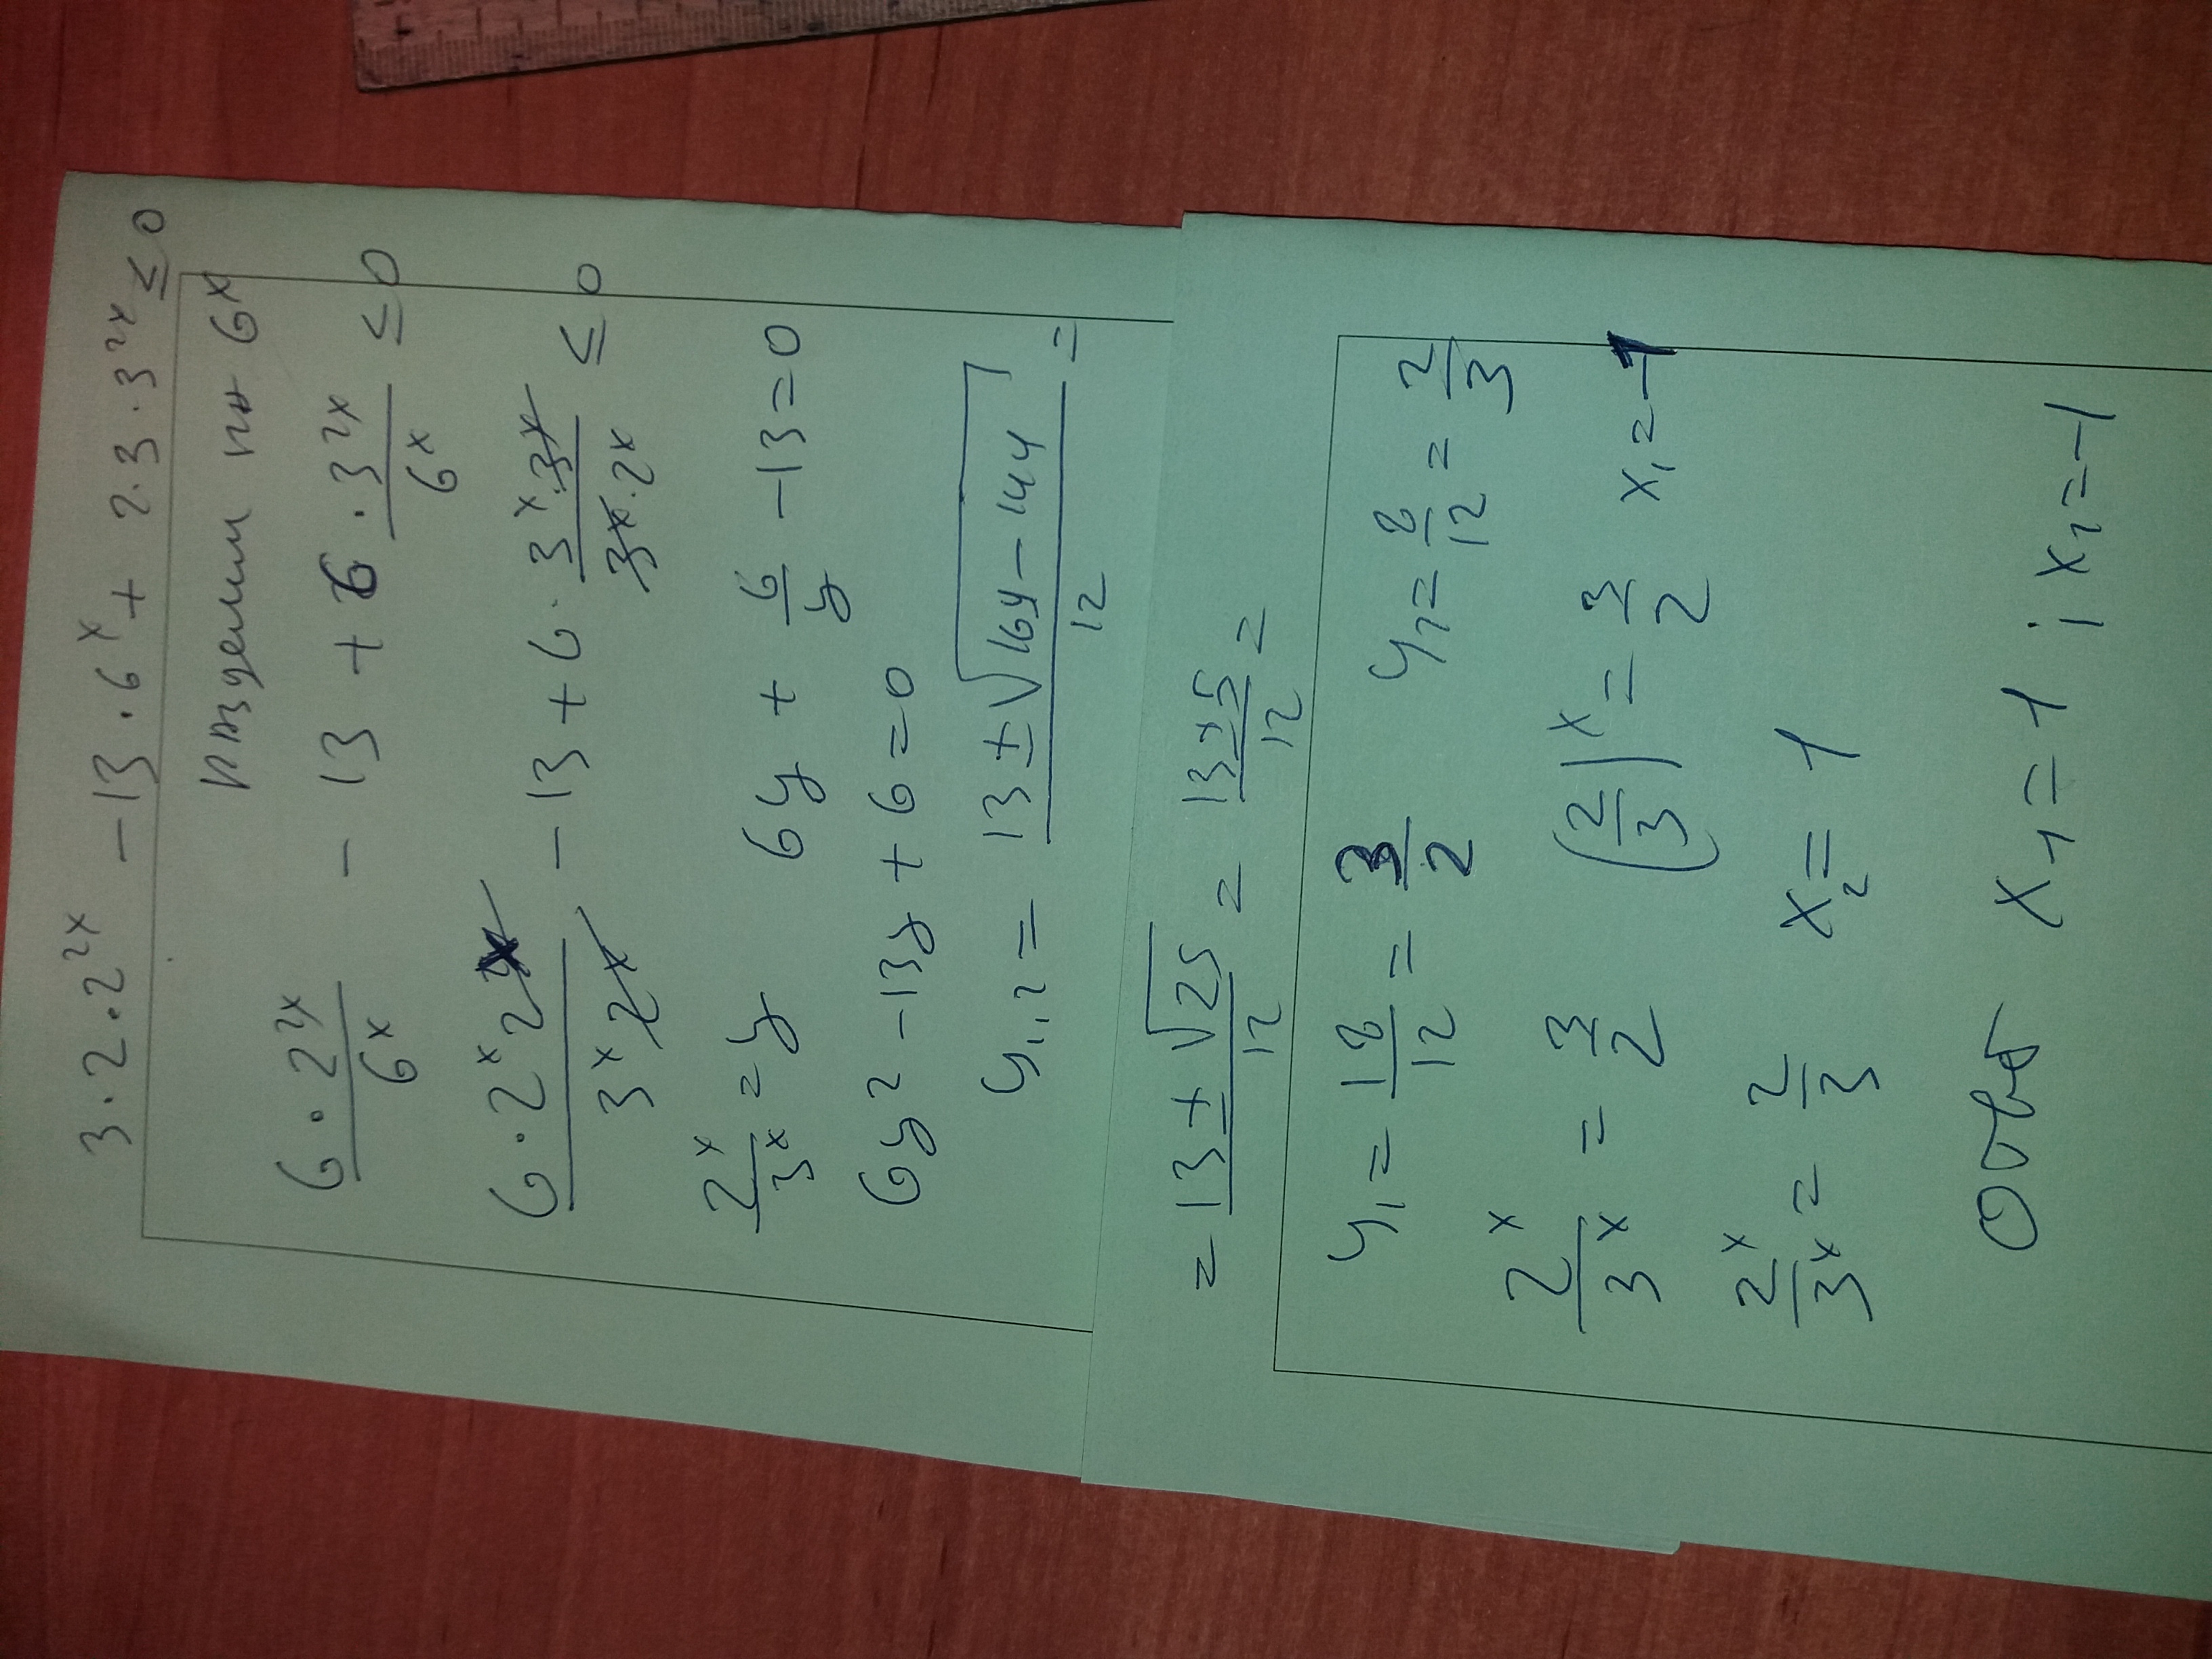 3·2·2^2x −13·6^x + 2·3·3^2x ≤ 0
разделим на 6^x
6·2^2x/6^x − 13 + 6·3^2x/6^x ≤ 0
6·2^x 2^x/3^x 2^x − 13 + 6·3^x·3^x/3^x·2^x ≤ 0
2^x/3^x = y 6y + 6/y − 13 = 0
6y² − 13y + 6 = 0
y₁,₂ = 13 ± √169 − 144/12 =
= 13 ± √25/12 = 13 ± 5/12 =
y₁ = 18/12 = 3/2 y₂ = 8/12 = 2/3
2^x/3^x = 3/2 (2/3)^x = 3/2 x₁ = −1
2^x/3^x = 2/3 x₂ = 1
x₁ = 1 ; x₂ = −1